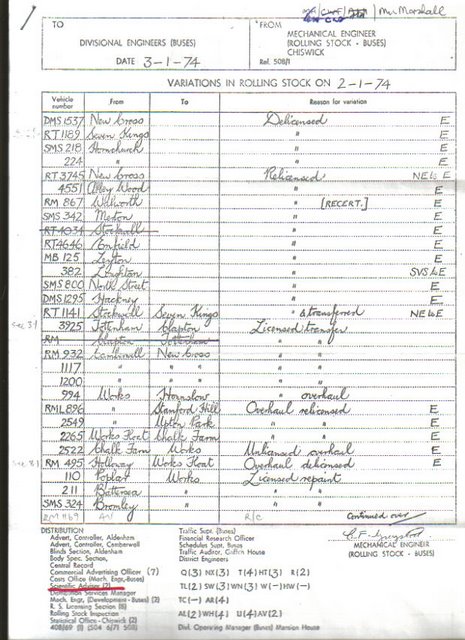 Mr Marshall
TO
FROM
DIVISIONAL ENGINEERS (BUSES)
MECHANICAL ENGINEER
(ROLLING STOCK - BUSES)
CHISWICK
DATE 3-1-74
Ref. 508/1
VARIATIONS IN ROLLING STOCK ON 2-1-74
Vehicle number From To Reason for variation
DMS 1537 New Cross Delicensed E
RT 1189 Seven Kings " E
SMS 218 Hornchurch " E
224 " " E
RT 3745 New Cross Relicensed NE to E
4551 Abbey Wood " E
RM 867 Walworth " [RECERT.] E
SMS 342 Merton " E
RT 4034 Stockwell " E
RT 4646 Enfield " E
MB 125 Leyton " E
382 Loughton " SVS to E
SMS 800 North Street " E
DMS 1295 Hackney " E
RT 1141 Stockwell Seven Kings " & transferred NE to E
3925 Tottenham Clapton Licensed transfer
RM Clapton Tottenham " "
RM 932 Camberwell New Cross " "
1117 " " " "
1200 " " " "
994 Works Hounslow " overhaul
RML 896 " Stamford Hill Overhaul relicensed E
2549 " Upton Park " " E
2265 Works Float Chalk Farm " " E
2522 Chalk Farm Works Unlicensed overhaul E
RM 495 Holloway Works Float Overhaul delicensed E
110 Poplar Works Licensed repaint
211 Battersea " " "
SMS 324 Bromley " " "
R/c Continued over
DISTRIBUTION
Advert. Controller, Aldenham
Advert. Controller, Camberwell
Blinds Section, Aldenham
Body Spec. Section,
Central Record
Commercial Advertising Officer (7)
Costs Office (Mech. Engr.-Buses)
Scientific Adviser (2)
Distribution Services Manager
Mech. Engr. (Development - Buses) (2)
R. S. Licensing Section (8)
Rolling Stock Inspection
Statistical Office - Chiswick (2)
408/69 (1) (504 6/71 508)
Traffic Supt. (Buses)
Financial Research Officer
Schedules Supt. (Buses)
Traffic Auditor, Griffith House
District Engineers
Q(3) NX(3) T(4) HT(3) R(2)
TL(2) SW(3) WN(3) W(-) HW(-)
TC(-) AR(4)
AL(2) WH(4) U(4) AV(2)
Divl. Operating Manager (Buses) Mansion House
MECHANICAL ENGINEER
(ROLLING STOCK - BUSES)